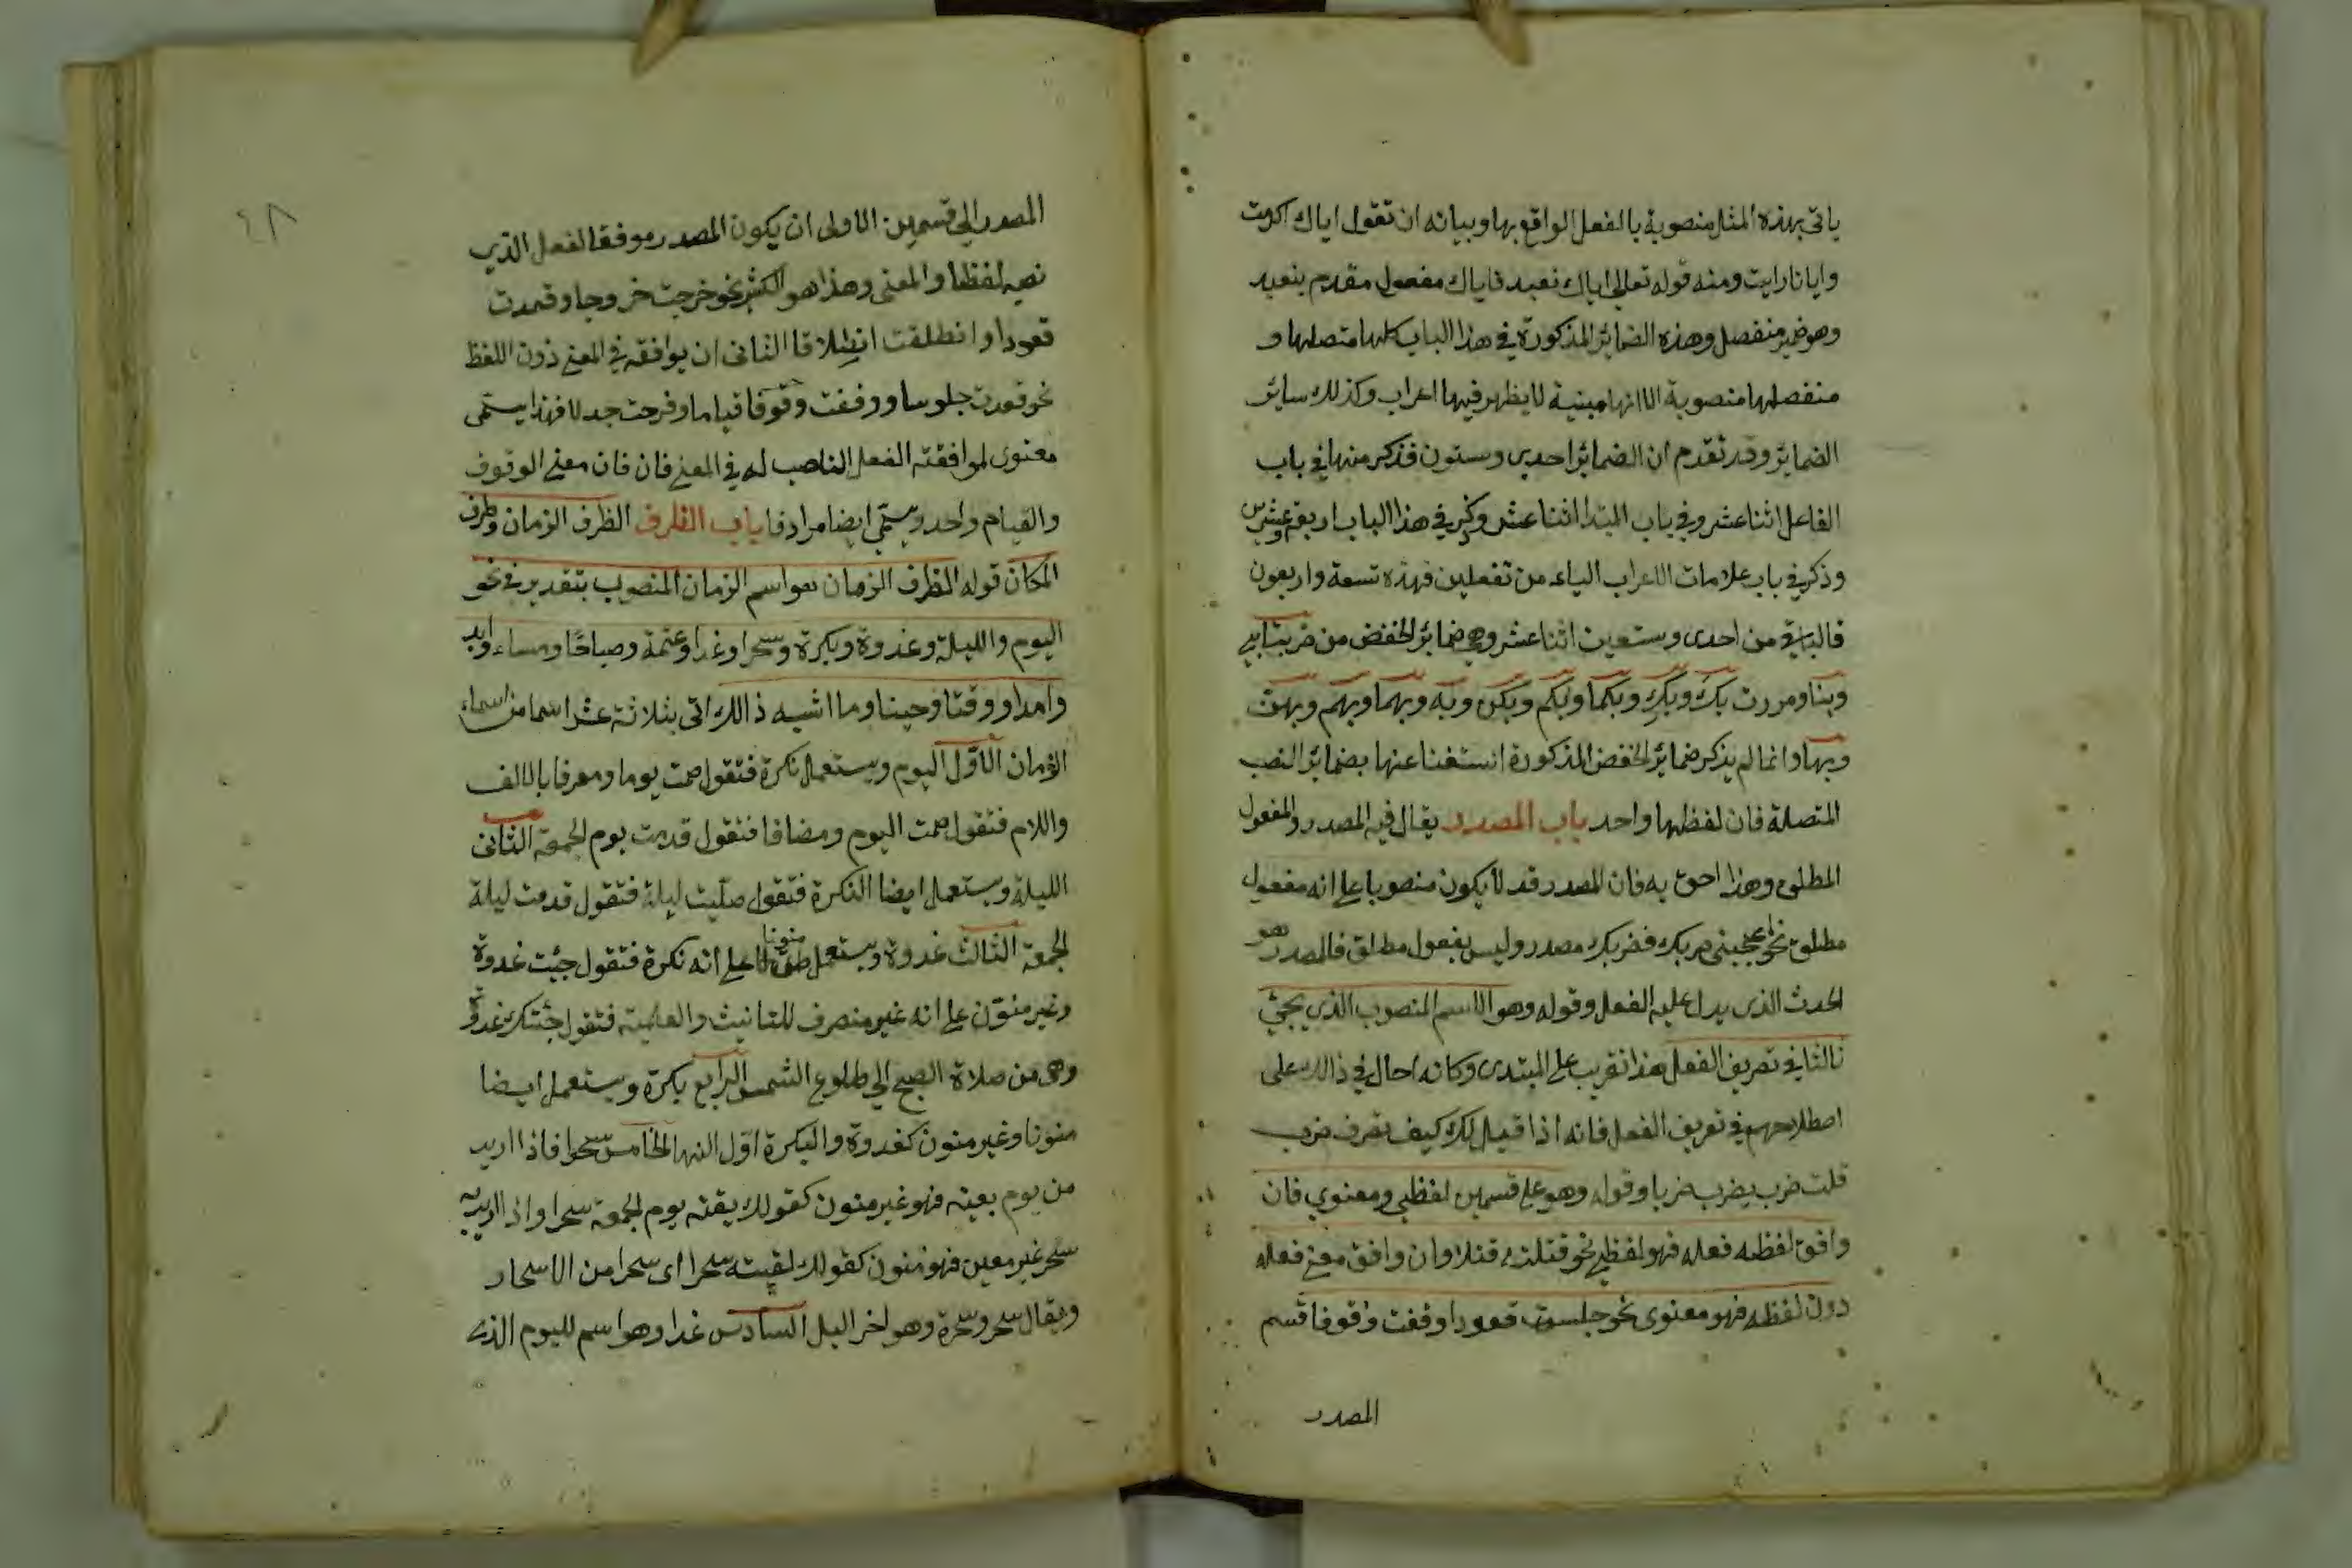 ياتى بهذه المثل منصوبة بالفعل الواقع بها وبيانه ان تقول اياك اكرمت
وايانا رايت ومنه قوله تعالى اياك نعبد فاياك مفعول مقدم بنعبد
وهو ضمير منفصل وهذه الضمائر المذكورة في هذا الباب كلها متصلها و
منفصلها منصوبة الا انها مبنية لا يظهر فيها اعراب وكذلك سائر
الضمائر وقد تقدم ان الضمائر احدى وستون فذكر منها في باب
الفاعل اثنا عشر وفي باب المبتدا اثنا عشر وذكر في هذا الباب اربعة وعشرين
وذكر في باب علامات الاعراب الياء من تفعلين فهذه تسعة واربعون
فالباقي من احدى وستين اثنا عشر وهي ضمائر الخفض من ضربتابي
وبنا ومررت بك وبك وبكما وبكم وبكن وبه وبهما وبهم وبهن
وبها وانما لم يذكر ضمائر الخفض المذكورة استغنا عنها بضمائر النصب
المتصلة فان لفظهما واحد باب المصدر يقال فيه المصدر والمفعول
المطلق وهذا احق به فان المصدر قد لا يكون منصوبا على انه مفعول
مطلق نحو اعجبنى ضربك فضربك مصدر وليس بفعول مطلق فالمصدر هو
الحدث الذى يدل عليه الفعل وقوله وهو الاسم المنصوب الذي يجئ
ثالثا في تصريف الفعل هذا تقريب على المبتدى وكانه احال في ذالك على
اصطلاحهم في تعريف الفعل فانه اذا قيل لك كيف تصرف ضرب
قلت ضرب يضرب ضربا وقوله وهو على قسمين لفظي ومعنوي فان
وافق لفظه فعله فهو لفظي نحو قتلته قتلا وان وافق معنى فعله
دون لفظه فهو معنوى نحو جلست قعودا وقفت وقوفا قسم
المصدر
٤٨
المصدر الي قسمين الاولى ان يكون المصدر موفقا لفعل الذي
نصبه لفظا والمعنى وهذا هو الكثير نحو خرجت خروجا وقعدت
قعودا وانطلقت انطلاقا الثانى ان يوافقه في المعنى دون اللفظ
نحو قعدت جلوسا ووقفت وقوفا قياما وفرحت جدلا فهذا يسمى
معنوى لموافقته الفعل الناصب له في المعنى فان فان معنى الوقوف
والقيام واحد ويسمى ايضا مرادفا باب الظرف الظرف الزمان وظرف
المكان قوله الظرف الزمان هو اسم الزمان المنصوب بتقدير في نحو
اليوم والليلة وغدوة وبكرة وسحرا وغدا وعتمة وصباحا ومساء وابد
وامدا ووقتا وحينا وما اشبه ذالك اتى بثلاثة عشر اسما من اسماء
الزمان الاول اليوم ويستعمل نكرة فتقول صمت يوما ومعرفا بالالف
واللام فتقول صمت اليوم ومضافا فتقول قدمت يوم الجمعة الثانى
الليلة ويستعمل ايضا النكرة فتقول صليت ليلة فتقول قدمت ليلة
الجمعة الثالث غدوة ويستعمل منونا على انه نكرة فتقول جئت غدوة
وغير منون على انه غير منصرف للتانيث والعلمية فتقول جئتك غدوة
وهي من صلاة الصبح الي طلوع الشمس الرابع بكرة ويستعمل ايضا
منونا وغير منون كغدوة والبكرة اول النهار الخامس سحرا فاذا اريد
من يوم بعينه فهو غير منون كقولك يقته يوم الجمعة سحرا واذا اريد به
سحر غير معين فهو منون كقولك لقيته سحرا اى سحرا من الاسحار
ويقال سحر وسحرة وهو اخر اليل السادس غدا وهو اسم لليوم الذى